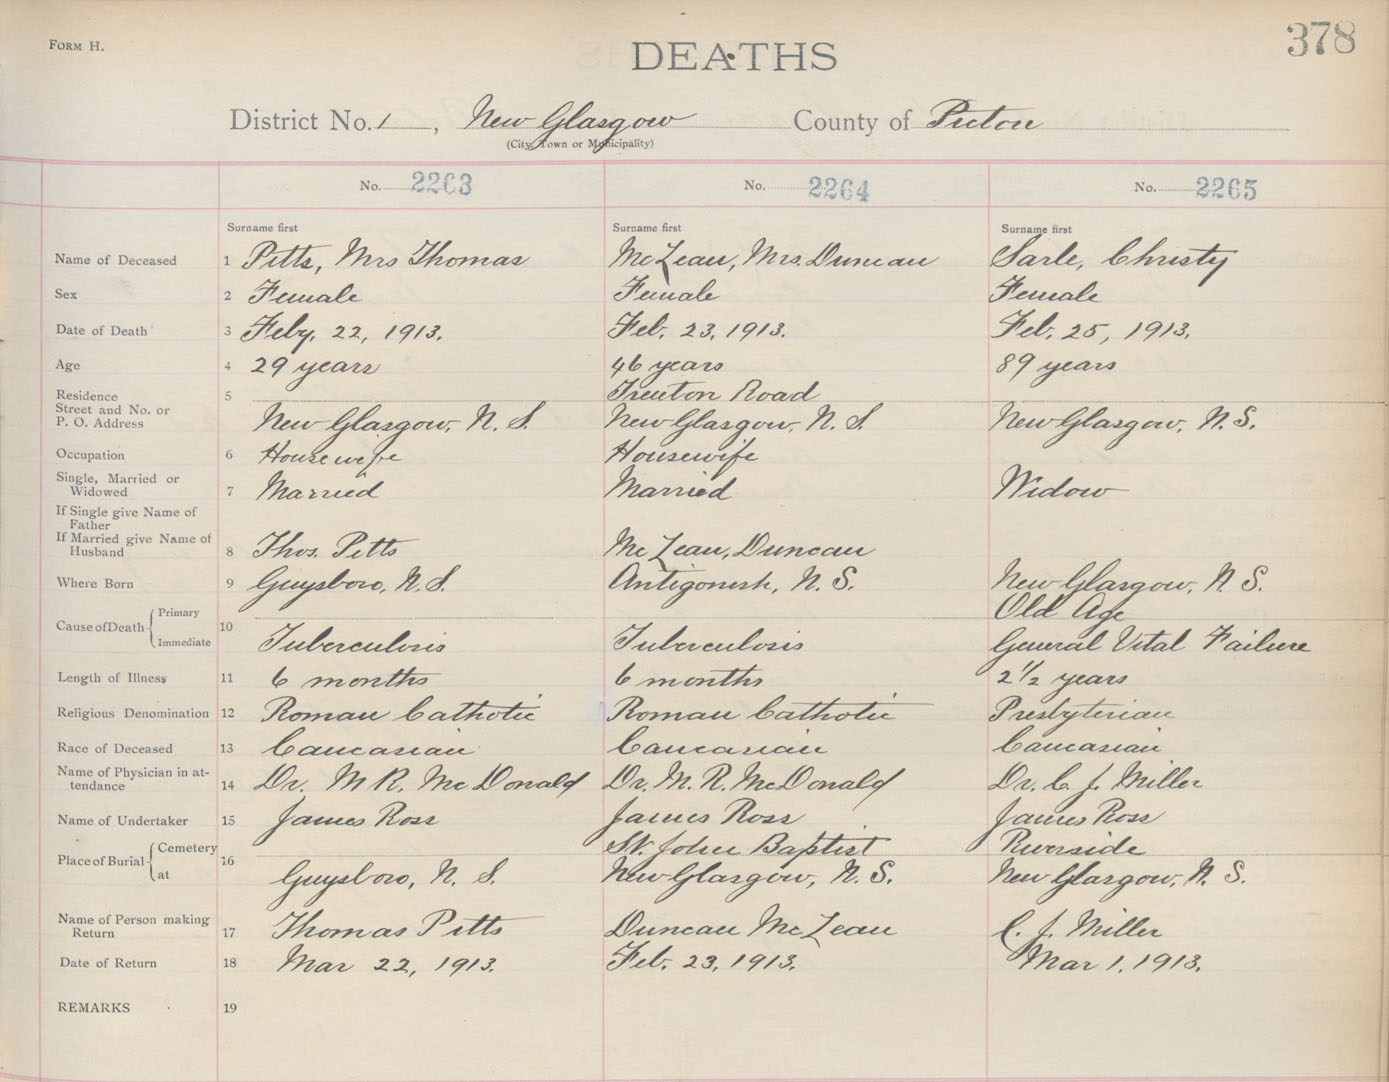 FORM H.
378
DEATHS
District No. 1, New Glasgow County of Pictou
(City, Town or Municipality)
No. 2263 No. 2264 No. 2265
Surname first Surname first Surname first
Name of Deceased 1 Pitts, Mrs Thomas McLean, Mrs. Duncan Sarle, Christy
Sex 2 Female Female Female
Date of Death 3 Feby. 22, 1913. Feb. 23, 1913. Feb. 25, 1913.
Age 4 29 years 46 years 89 years
Residence 5 Trenton Road
Street and No. or
P. O. Address New Glasgow, N. S. New Glasgow, N. S. New Glasgow, N. S.
Occupation 6 Housewife Housewife
Single, Married or
Widowed 7 Married Married Widow
If Single give Name of
Father
If Married give Name of
Husband 8 Thos. Pitts McLean, Duncan
Where Born 9 Guysboro, N. S. Antigonish, N. S. New Glasgow, N. S.
Cause of Death Primary 10 Old Age
Immediate Tuberculosis Tuberculosis General Vital Failure
Length of Illness 11 6 months 6 months 2 1/2 years
Religious Denomination 12 Roman Catholic Roman Catholic Presbyterian
Race of Deceased 13 Caucasian Caucasian Caucasian
Name of Physician in at-
tendance 14 Dr. M R. McDonald Dr. M. R. McDonald Dr. C. J. Miller
Name of Undertaker 15 James Ross James Ross James Ross
Place of Burial Cemetery 16 St. John Baptist Riverside
at Guysboro, N. S. New Glasgow, N. S. New Glasgow, N. S.
Name of Person making
Return 17 Thomas Pitts Duncan McLean C. J. Miller
Date of Return 18 Mar 22, 1913. Feb. 23, 1913. Mar 1, 1913.
REMARKS 19